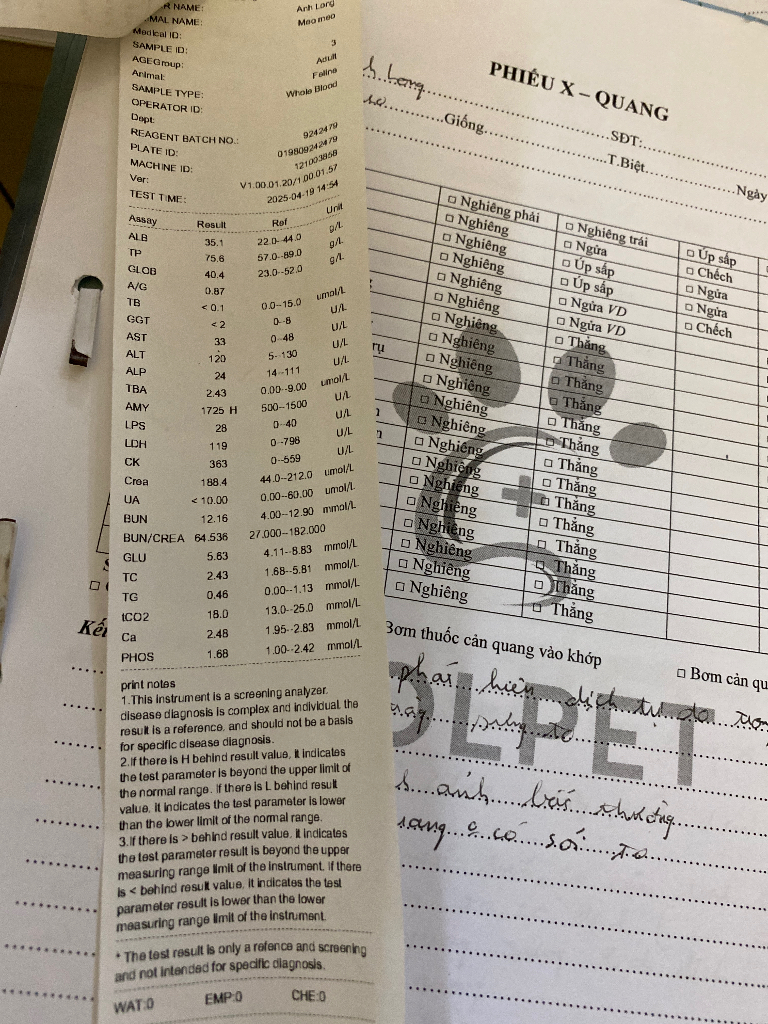 R NAME: Anh Long
MAL NAME: Meo meo
Medical ID:
SAMPLE ID: 3
AGEGroup: Adult
Animal: Feline
SAMPLE TYPE: Whole Blood
OPERATOR ID:
Dept:
REAGENT BATCH NO.: 9242479
PLATE ID: 019809242479
MACHINE ID: 121003858
Ver: V1.00.01.20/1.00.01.57
TEST TIME: 2025-04-19 14:54
Assay Result Ref Unit
ALB 35.1 22.0--44.0 g/L
TP 75.6 57.0--89.0 g/L
GLOB 40.4 23.0--52.0 g/L
A/G 0.87
TB < 0.1 0.0--15.0 umol/L
GGT < 2 0--8 U/L
AST 33 0--48 U/L
ALT 120 5--130 U/L
ALP 24 14--111 U/L
TBA 2.43 0.00--9.00 umol/L
AMY 1725 H 500--1500 U/L
LPS 28 0--40 U/L
LDH 119 0--798 U/L
CK 363 0--559 U/L
Crea 188.4 44.0--212.0 umol/L
UA < 10.00 0.00--60.00 umol/L
BUN 12.16 4.00--12.90 mmol/L
BUN/CREA 64.536 27.000--182.000
GLU 5.63 4.11--8.83 mmol/L
TC 2.43 1.68--5.81 mmol/L
TG 0.46 0.00--1.13 mmol/L
tCO2 18.0 13.0--25.0 mmol/L
Ca 2.48 1.95--2.83 mmol/L
PHOS 1.68 1.00--2.42 mmol/L
print notes
1.This instrument is a screening analyzer,
disease diagnosis is complex and individual, the
result is a reference, and should not be a basis
for specific disease diagnosis.
2.If there is H behind result value, it indicates
the test parameter is beyond the upper limit of
the normal range. If there is L behind result
value, it indicates the test parameter is lower
than the lower limit of the normal range.
3.If there is > behind result value, it indicates
the test parameter result is beyond the upper
measuring range limit of the instrument. If there
is < behind result value, it indicates the test
parameter result is lower than the lower
measuring range limit of the instrument.
* The test result is only a refence and screening
and not intended for specific diagnosis.
WAT:0 EMP:0 CHE:0
PHIẾU X – QUANG
h Long SĐT:
Giống T.Biệt Ngày
□ Nghiêng phải □ Nghiêng trái □ Úp sấp
□ Nghiêng □ Ngửa □ Chếch
□ Nghiêng □ Úp sấp □ Ngửa
□ Nghiêng □ Úp sấp □ Ngửa
□ Nghiêng □ Ngửa VD □ Chếch
□ Nghiêng □ Ngửa VD
□ Nghiêng □ Thẳng
□ Nghiêng □ Thẳng
□ Nghiêng □ Thẳng
□ Nghiêng □ Thẳng
□ Nghiêng □ Thẳng
□ Nghiêng □ Thẳng
□ Nghiêng □ Thẳng
□ Nghiêng □ Thẳng
□ Nghiêng □ Thẳng
□ Nghiêng □ Thẳng
□ Nghiêng □ Thẳng
□ Nghiêng □ Thẳng
□ Nghiêng □ Thẳng
□ Nghiêng □ Thẳng
Bơm thuốc cản quang vào khớp □ Bơm cản qu
phát hiện dịch tự do
OLPET
ảnh bất thường
có sỏi